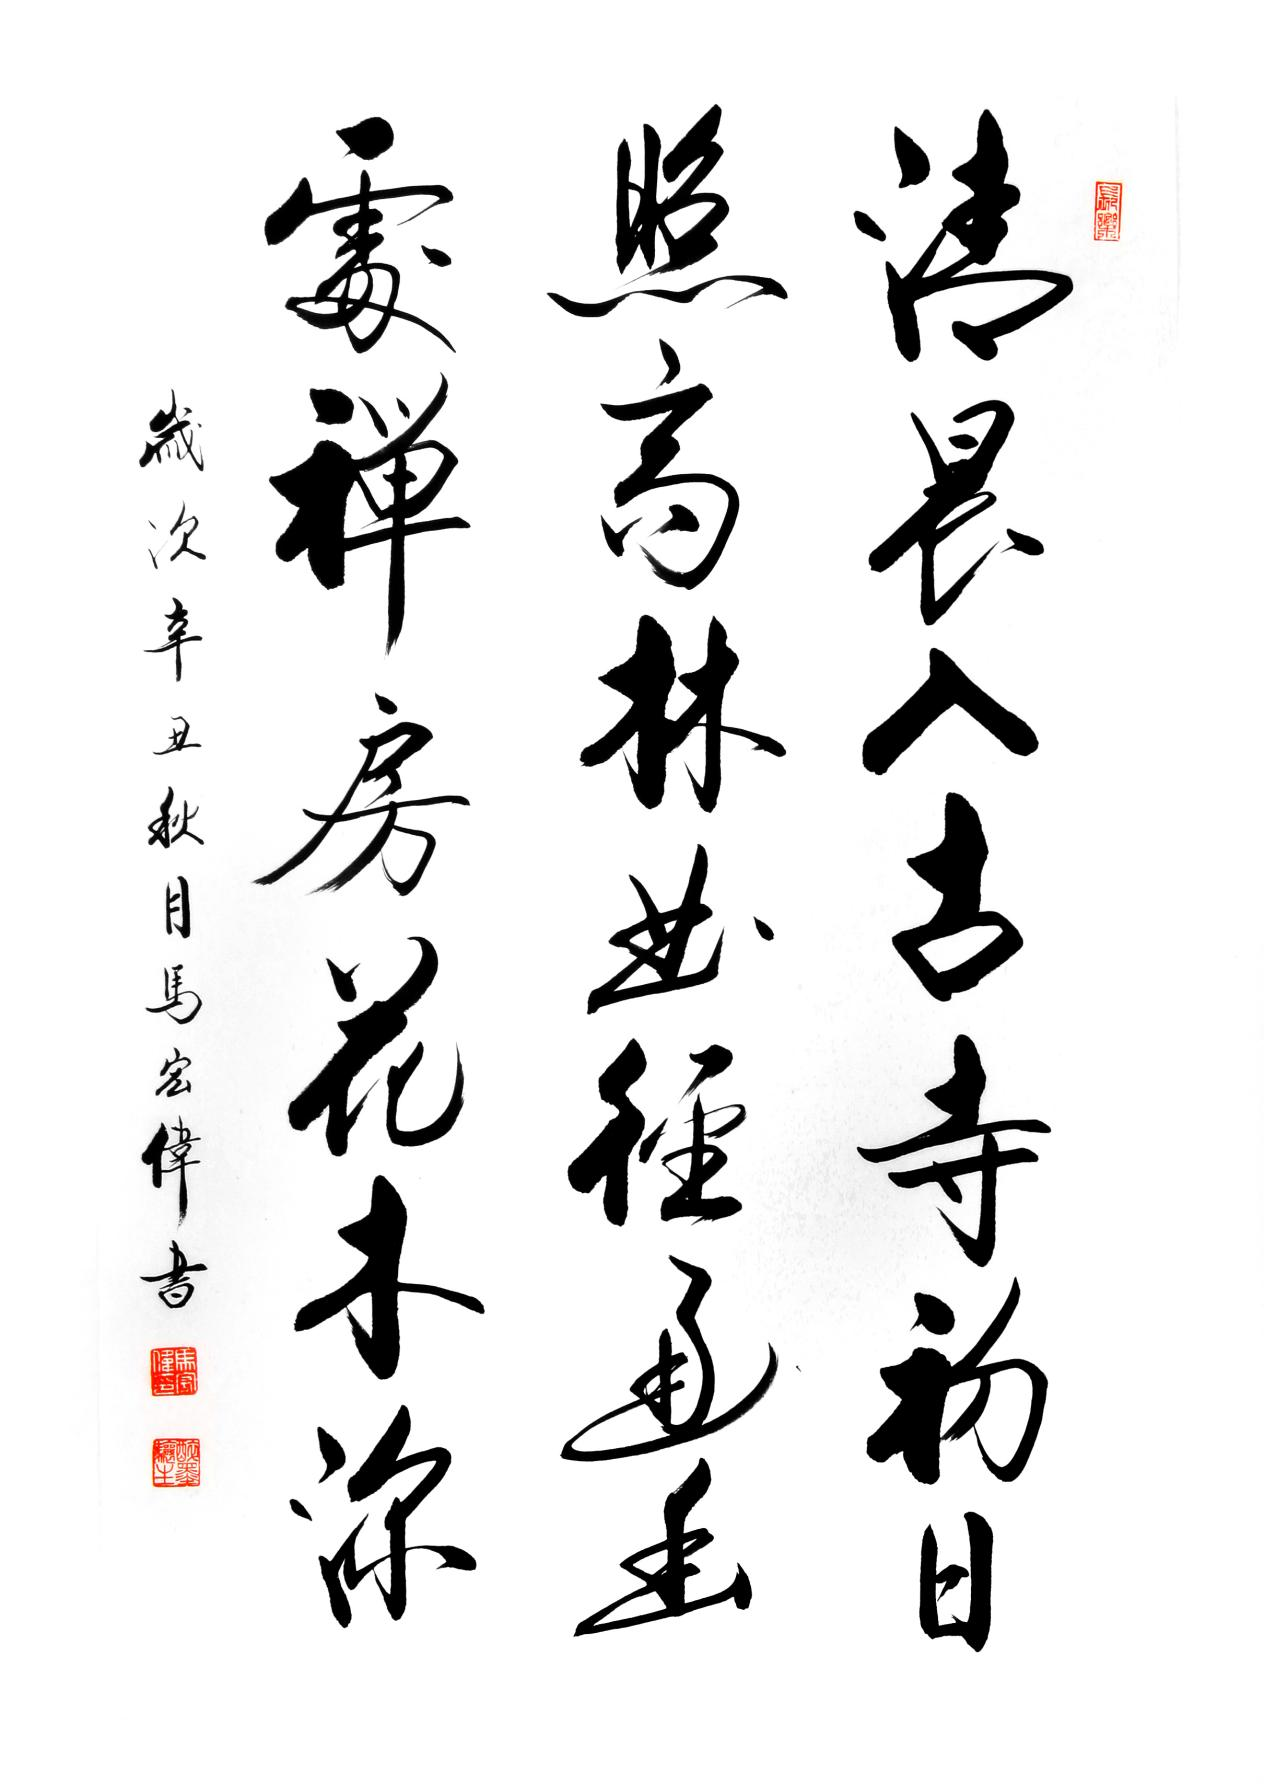 長樂
清晨入古寺初日
照高林曲徑通幽
處禅房花木深
歲次辛丑秋月馬宏偉書
馬宏偉印